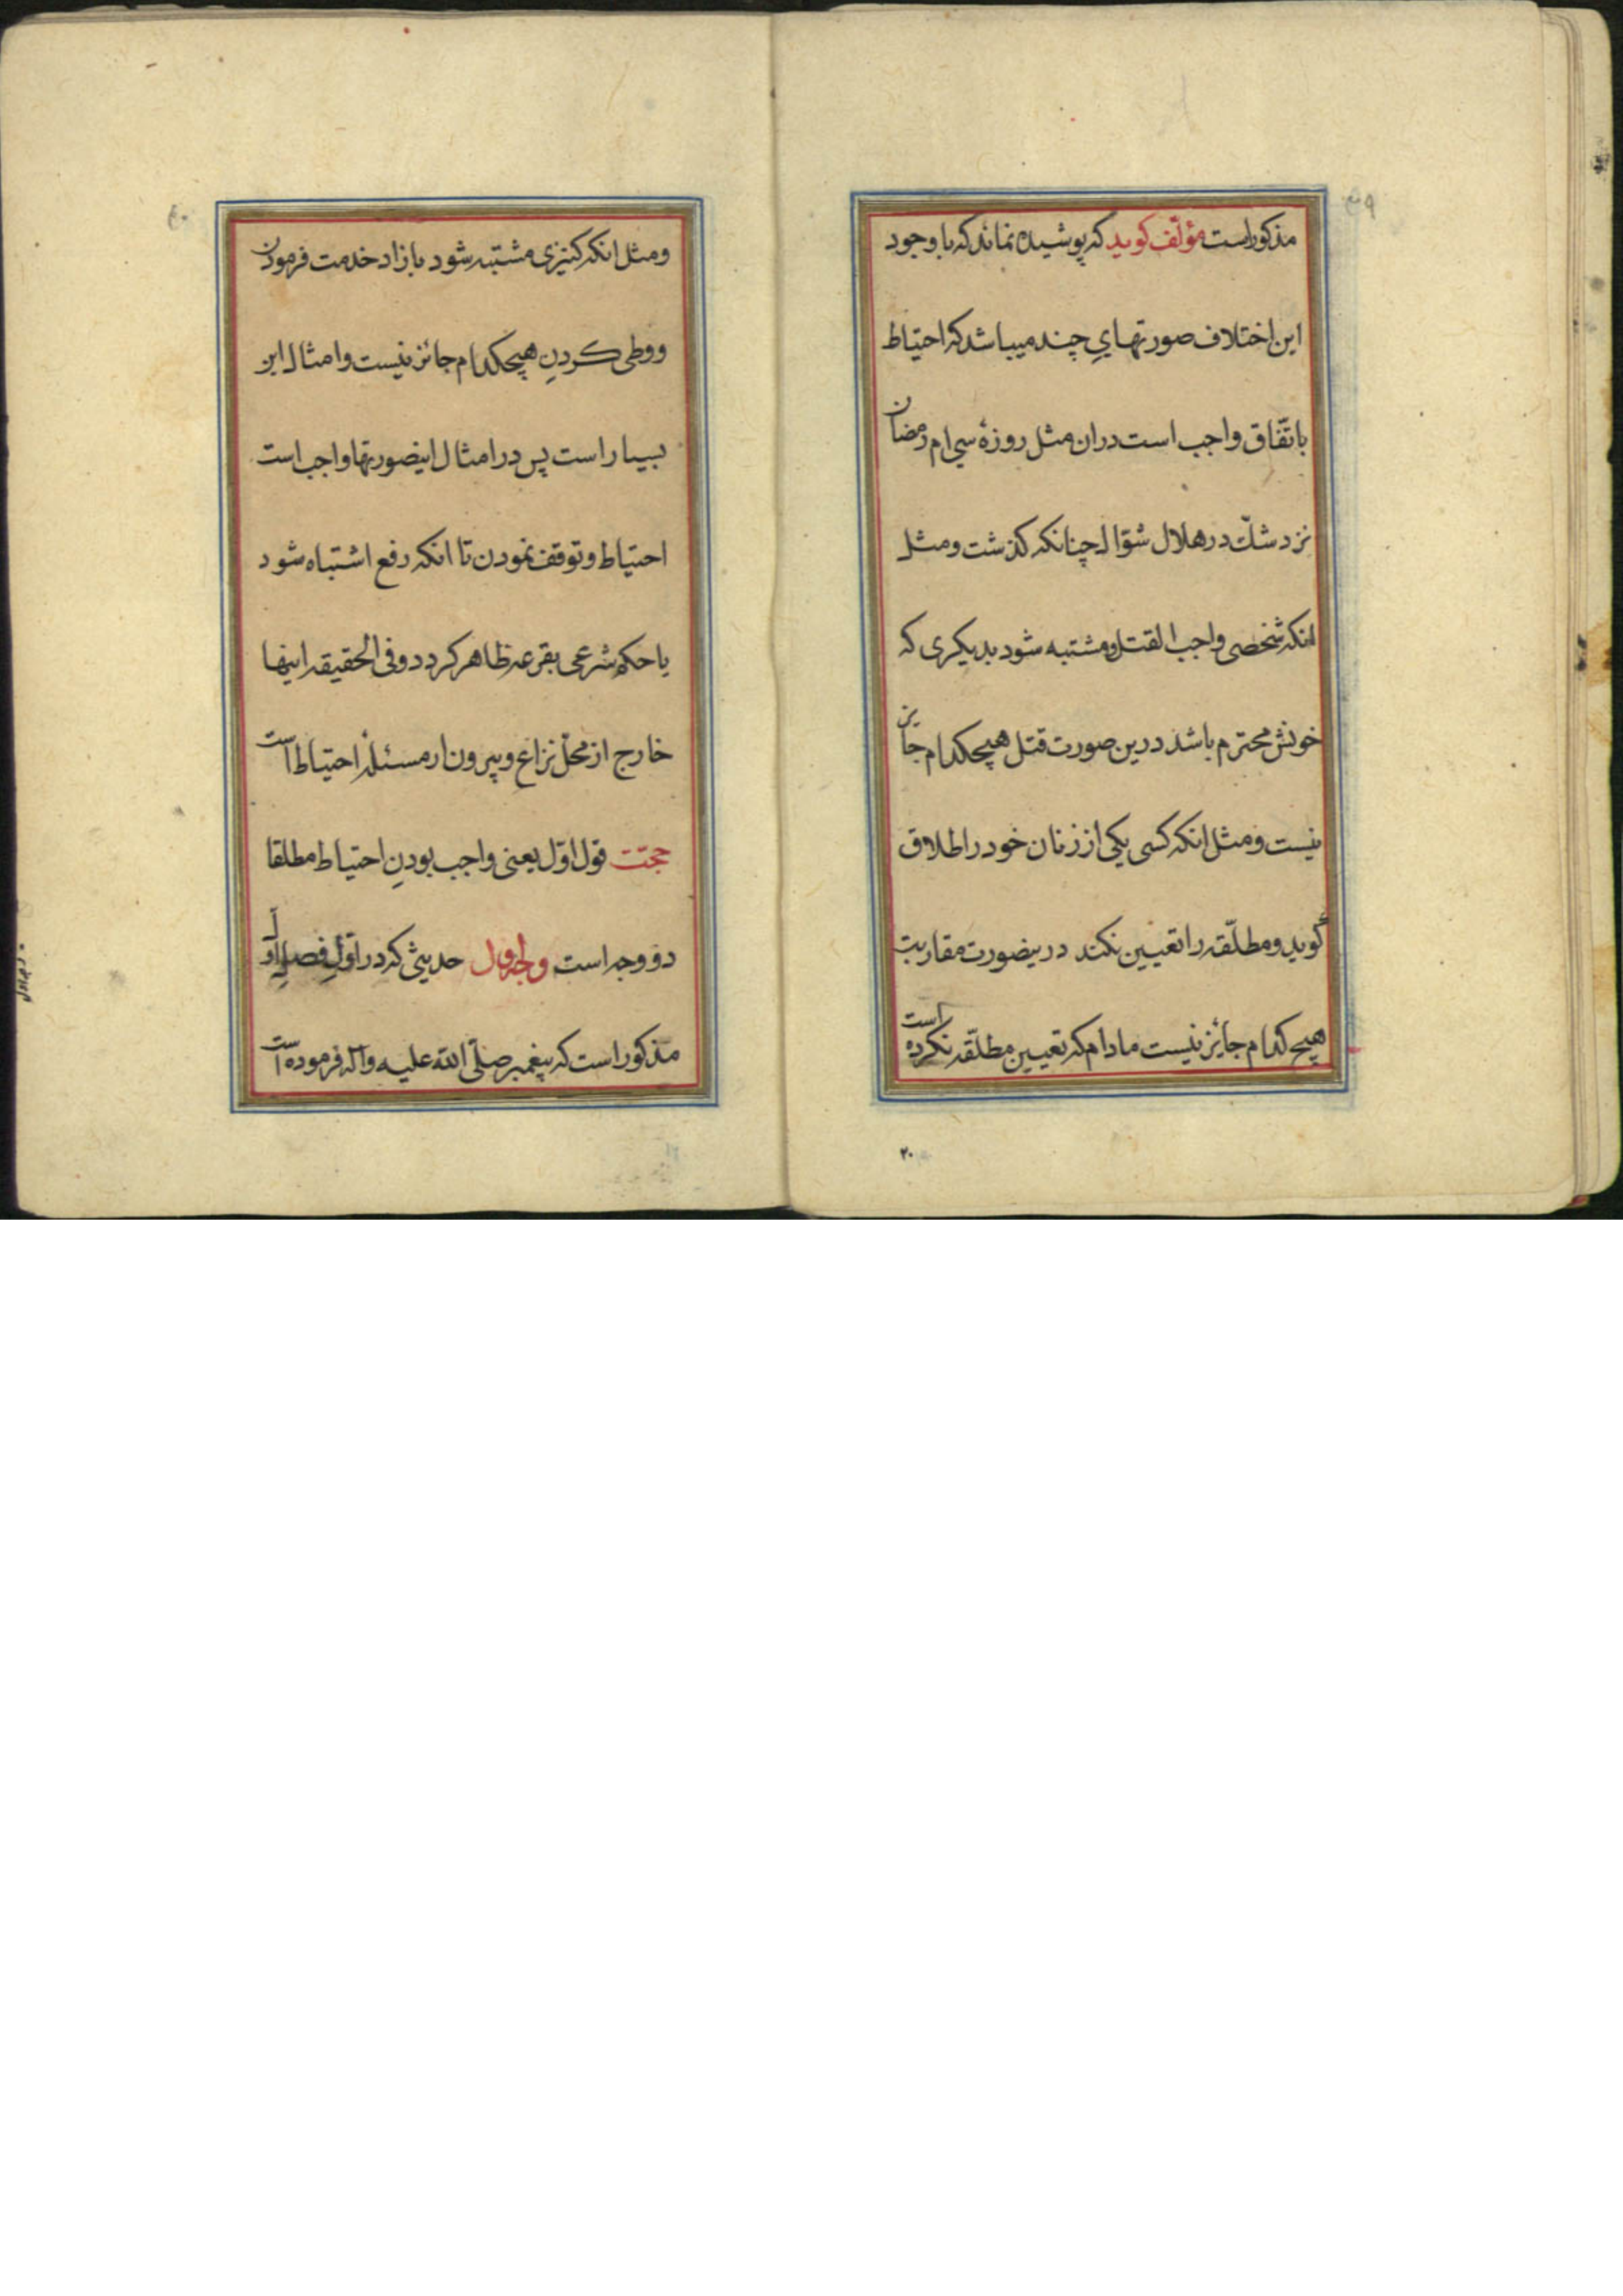 مذکور است مؤلّف کوید که پوشیده نماند که با وجود
این اختلاف صورتهایِ چند میباشد که احتیاط
باتّفاق واجب است دران مثل روزهٔ سی ام رمضان
نزد شكّ در هلال شوّال چنانکه کذشت و مثل
انکه شخصی واجب القتل و مشتبه شود بدیکری که
خونش محترم باشد درین صورت قتل هیچکدام جایز
نیست و مثل انکه کسی یکی از زنان خود را طلاق
گوید و مطلّقه را تعیین نکند درینصورت مقاربت
هیچ کدام جایٔز نیست مادام که تعیین مطلّقه نکرده است
۲۰
و مثل انکه کنیزی مشتبه شود بازاد خدمت فرمودن
و وطی کردنِ هیچکدام جائز نیست و امثال این
بسیار است پس در امثال اینصورتها واجب است
احتیاط و توقف نمودن تا انکه رفع اشتباه شود
یا حکم شرعی بقرعه ظاهر کردد و فی الحقیقه اینها
خارج از محلّ نزاع و بیرون از مسئلهٔ احتیاط است
حجّت قول اوّل یعنی واجب بودنِ احتیاط مطلقا
دو وجه است وجه اول حدیثی که در اوّلِ فصلِ اوّل
مذکور است که پیغمبر صلّی الله علیه و اله فرموده است